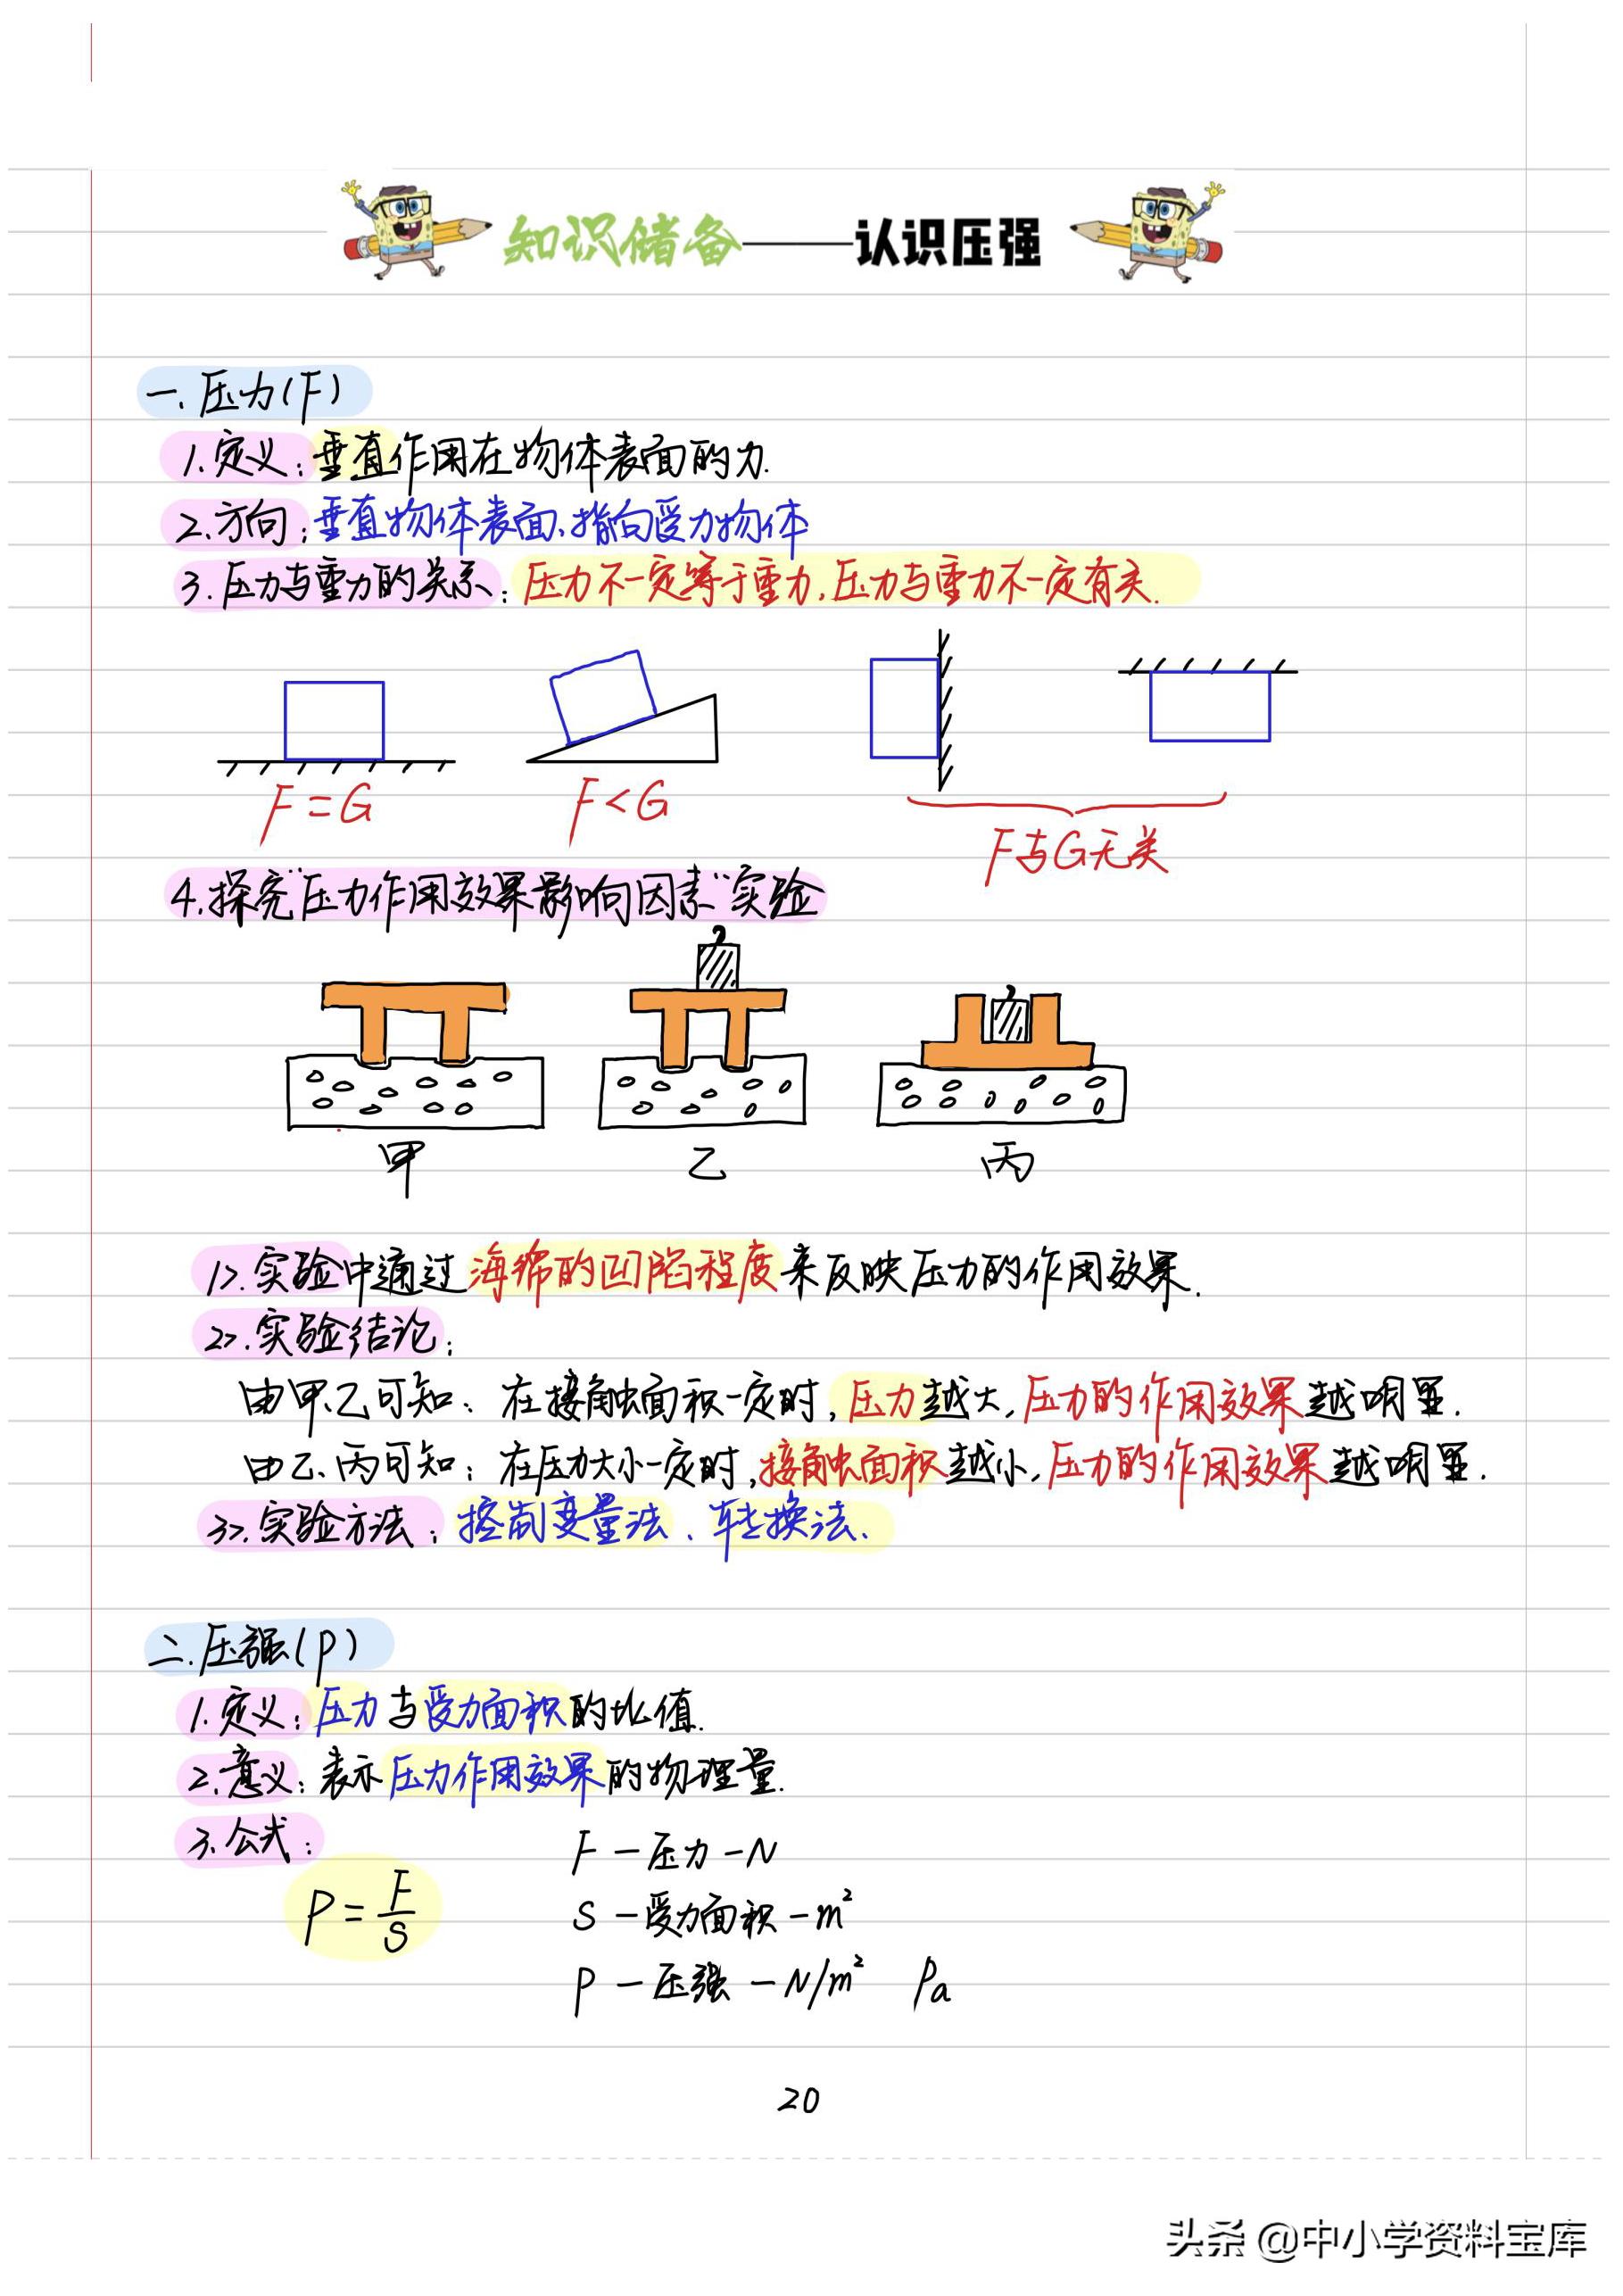 知识储备——认识压强
一.压力(F)
1.定义:垂直作用在物体表面的力.
2.方向:垂直物体表面、指向受力物体
3.压力与重力的关系:压力不一定等于重力,压力与重力不一定有关.
F=G
F<G
F与G无关
4.探究"压力作用效果影响因素"实验
甲
乙
丙
1>.实验中通过海绵的凹陷程度来反映压力的作用效果.
2>.实验结论:
由甲、乙可知:在接触面积一定时,压力越大,压力的作用效果越明显.
由乙、丙可知:在压力大小一定时,接触面积越小,压力的作用效果越明显.
3>.实验方法:控制变量法、转换法.
二.压强(P)
1.定义:压力与受力面积的比值.
2.意义:表示压力作用效果的物理量.
3.公式:
P=F/S
F—压力—N
S—受力面积—m²
P—压强—N/m² Pa
20
头条 @中小学资料宝库